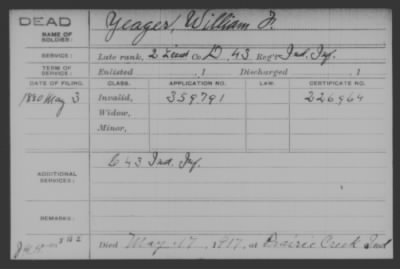 DEAD
NAME OF SOLDIER: Yeager, William F.
SERVICE: Late rank, 2 Lieut Co. D, 43 Reg't Ind. Inf.
TERM OF SERVICE: Enlisted , 1 Discharged , 1
DATE OF FILING. CLASS. APPLICATION NO. LAW. CERTIFICATE NO.
1880 May 3 Invalid, 359791 226964
Widow,
Minor,
ADDITIONAL SERVICES: C 43 Ind. Inf.
REMARKS:
Died May 17, 1917, at Prairie Creek Ind